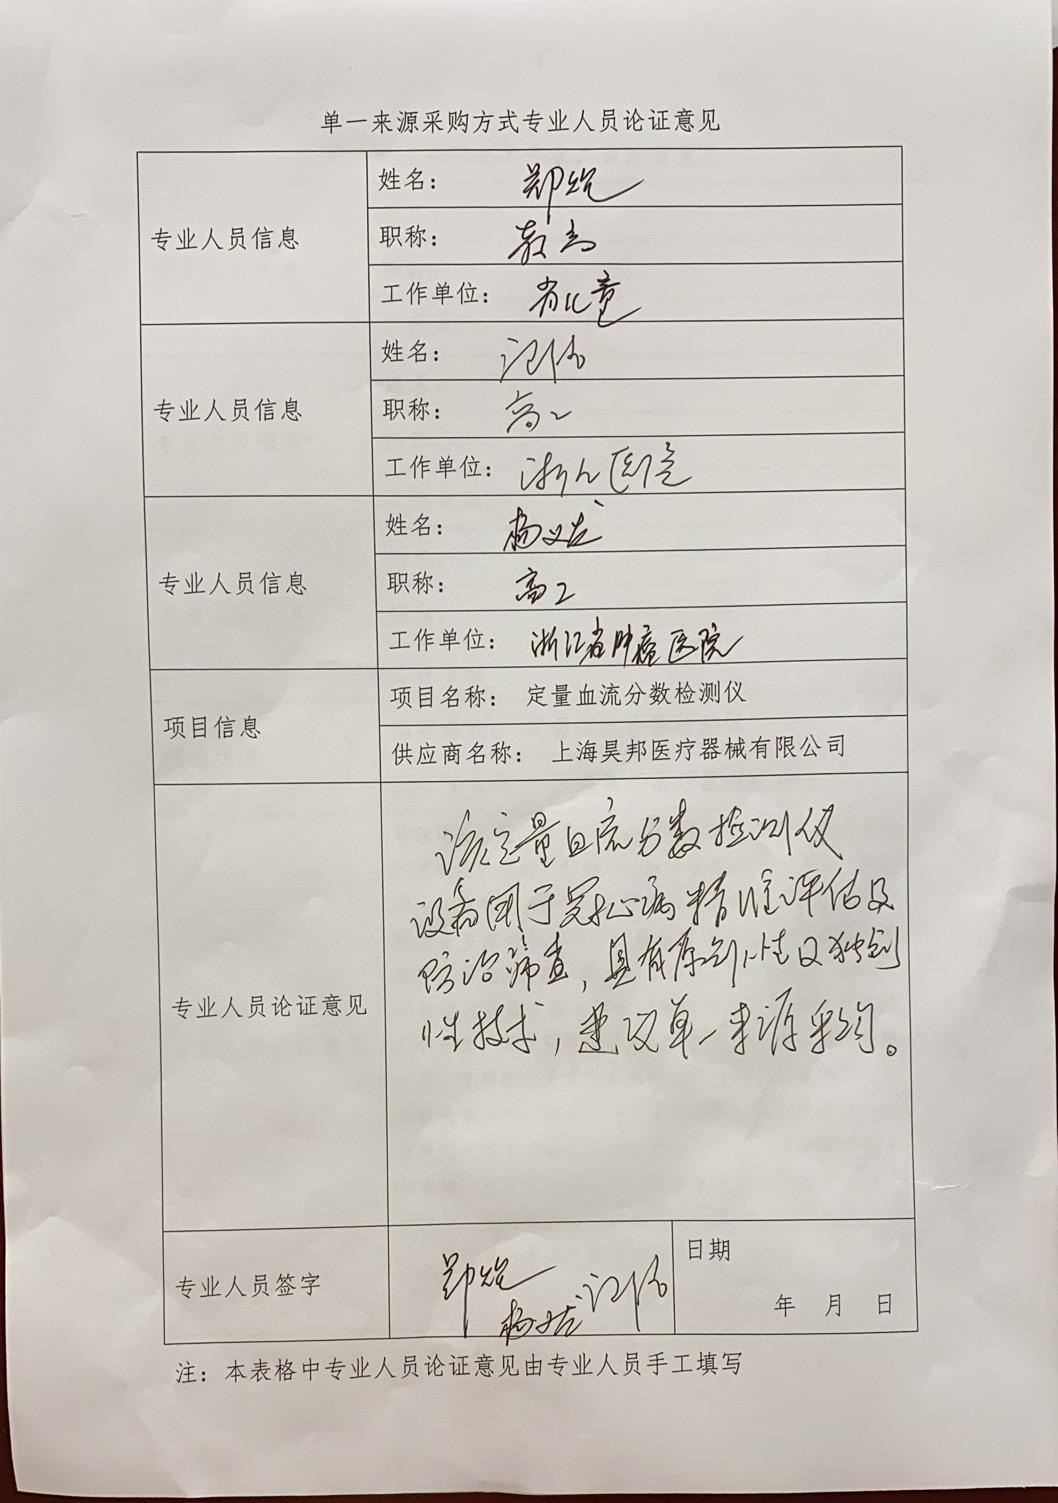 单一来源采购方式专业人员论证意见
专业人员信息
姓名： 郑焜
职称： 教高
工作单位： 省儿童
专业人员信息
姓名：
职称： 高工
工作单位： 浙人医院
专业人员信息
姓名： 杨义龙
职称： 高工
工作单位： 浙江省肿瘤医院
项目信息
项目名称： 定量血流分数检测仪
供应商名称： 上海昊邦医疗器械有限公司
专业人员论证意见
该定量血流分数检测仪
设备用于冠心病精准评估及
防治筛查，具有原创性及独创
性技术，建议单一来源采购。
专业人员签字
郑焜
杨义龙
日期
年 月 日
注：本表格中专业人员论证意见由专业人员手工填写